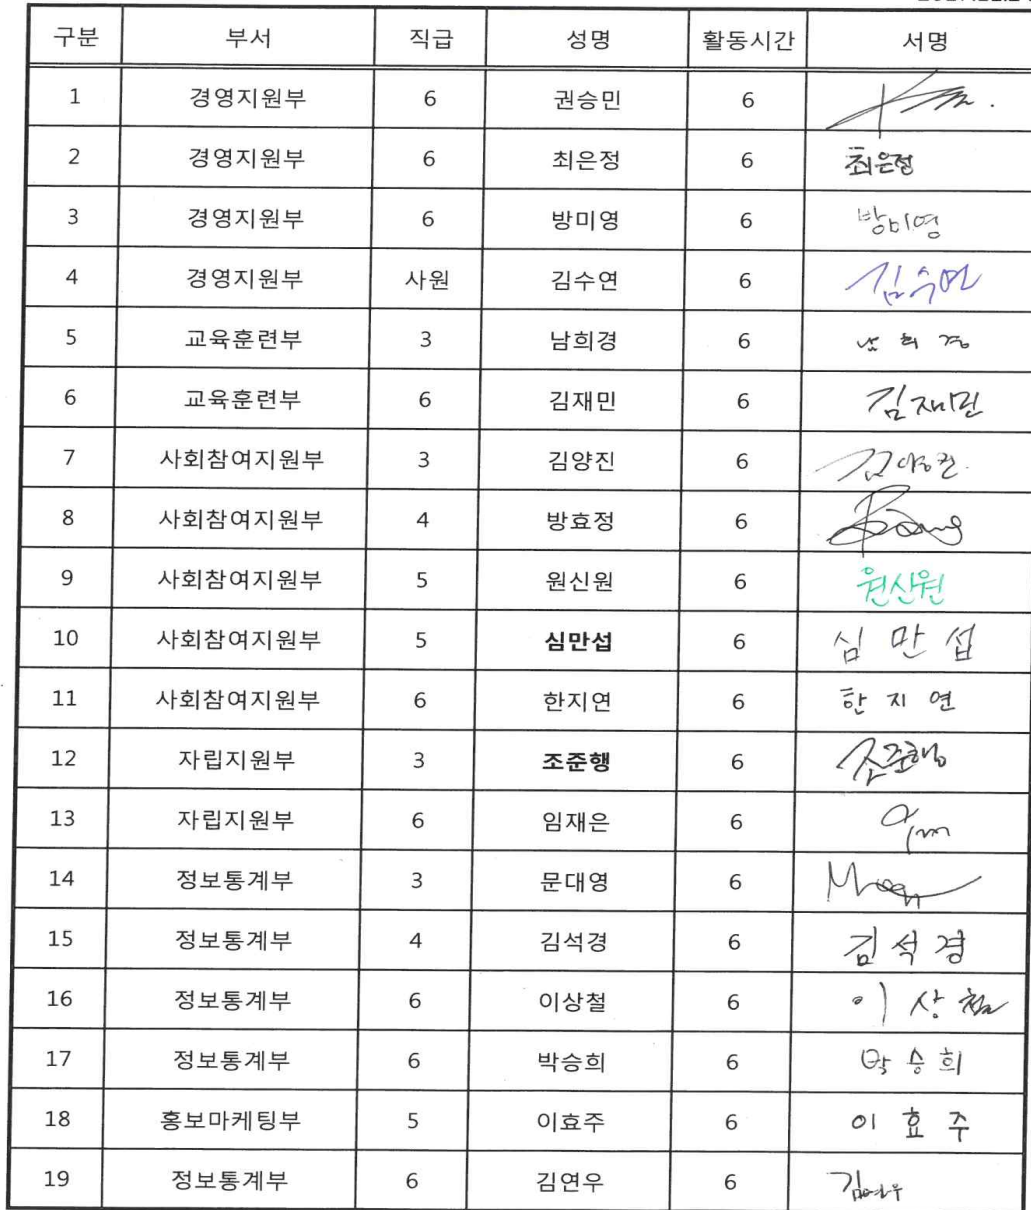 구분 부서 직급 성명 활동시간 서명
1 경영지원부 6 권승민 6
2 경영지원부 6 최은정 6 최은정
3 경영지원부 6 방미영 6 방미영
4 경영지원부 사원 김수연 6 김수연
5 교육훈련부 3 남희경 6 남희경
6 교육훈련부 6 김재민 6 김재민
7 사회참여지원부 3 김양진 6
8 사회참여지원부 4 방효정 6 Bang
9 사회참여지원부 5 원신원 6 원신원
10 사회참여지원부 5 심만섭 6 심 만 섭
11 사회참여지원부 6 한지연 6 한 지 연
12 자립지원부 3 조준행 6 조준행
13 자립지원부 6 임재은 6
14 정보통계부 3 문대영 6 Moon
15 정보통계부 4 김석경 6 김 석 경
16 정보통계부 6 이상철 6 이 상 철
17 정보통계부 6 박승희 6 박 승 희
18 홍보마케팅부 5 이효주 6 이 효 주
19 정보통계부 6 김연우 6 김연우